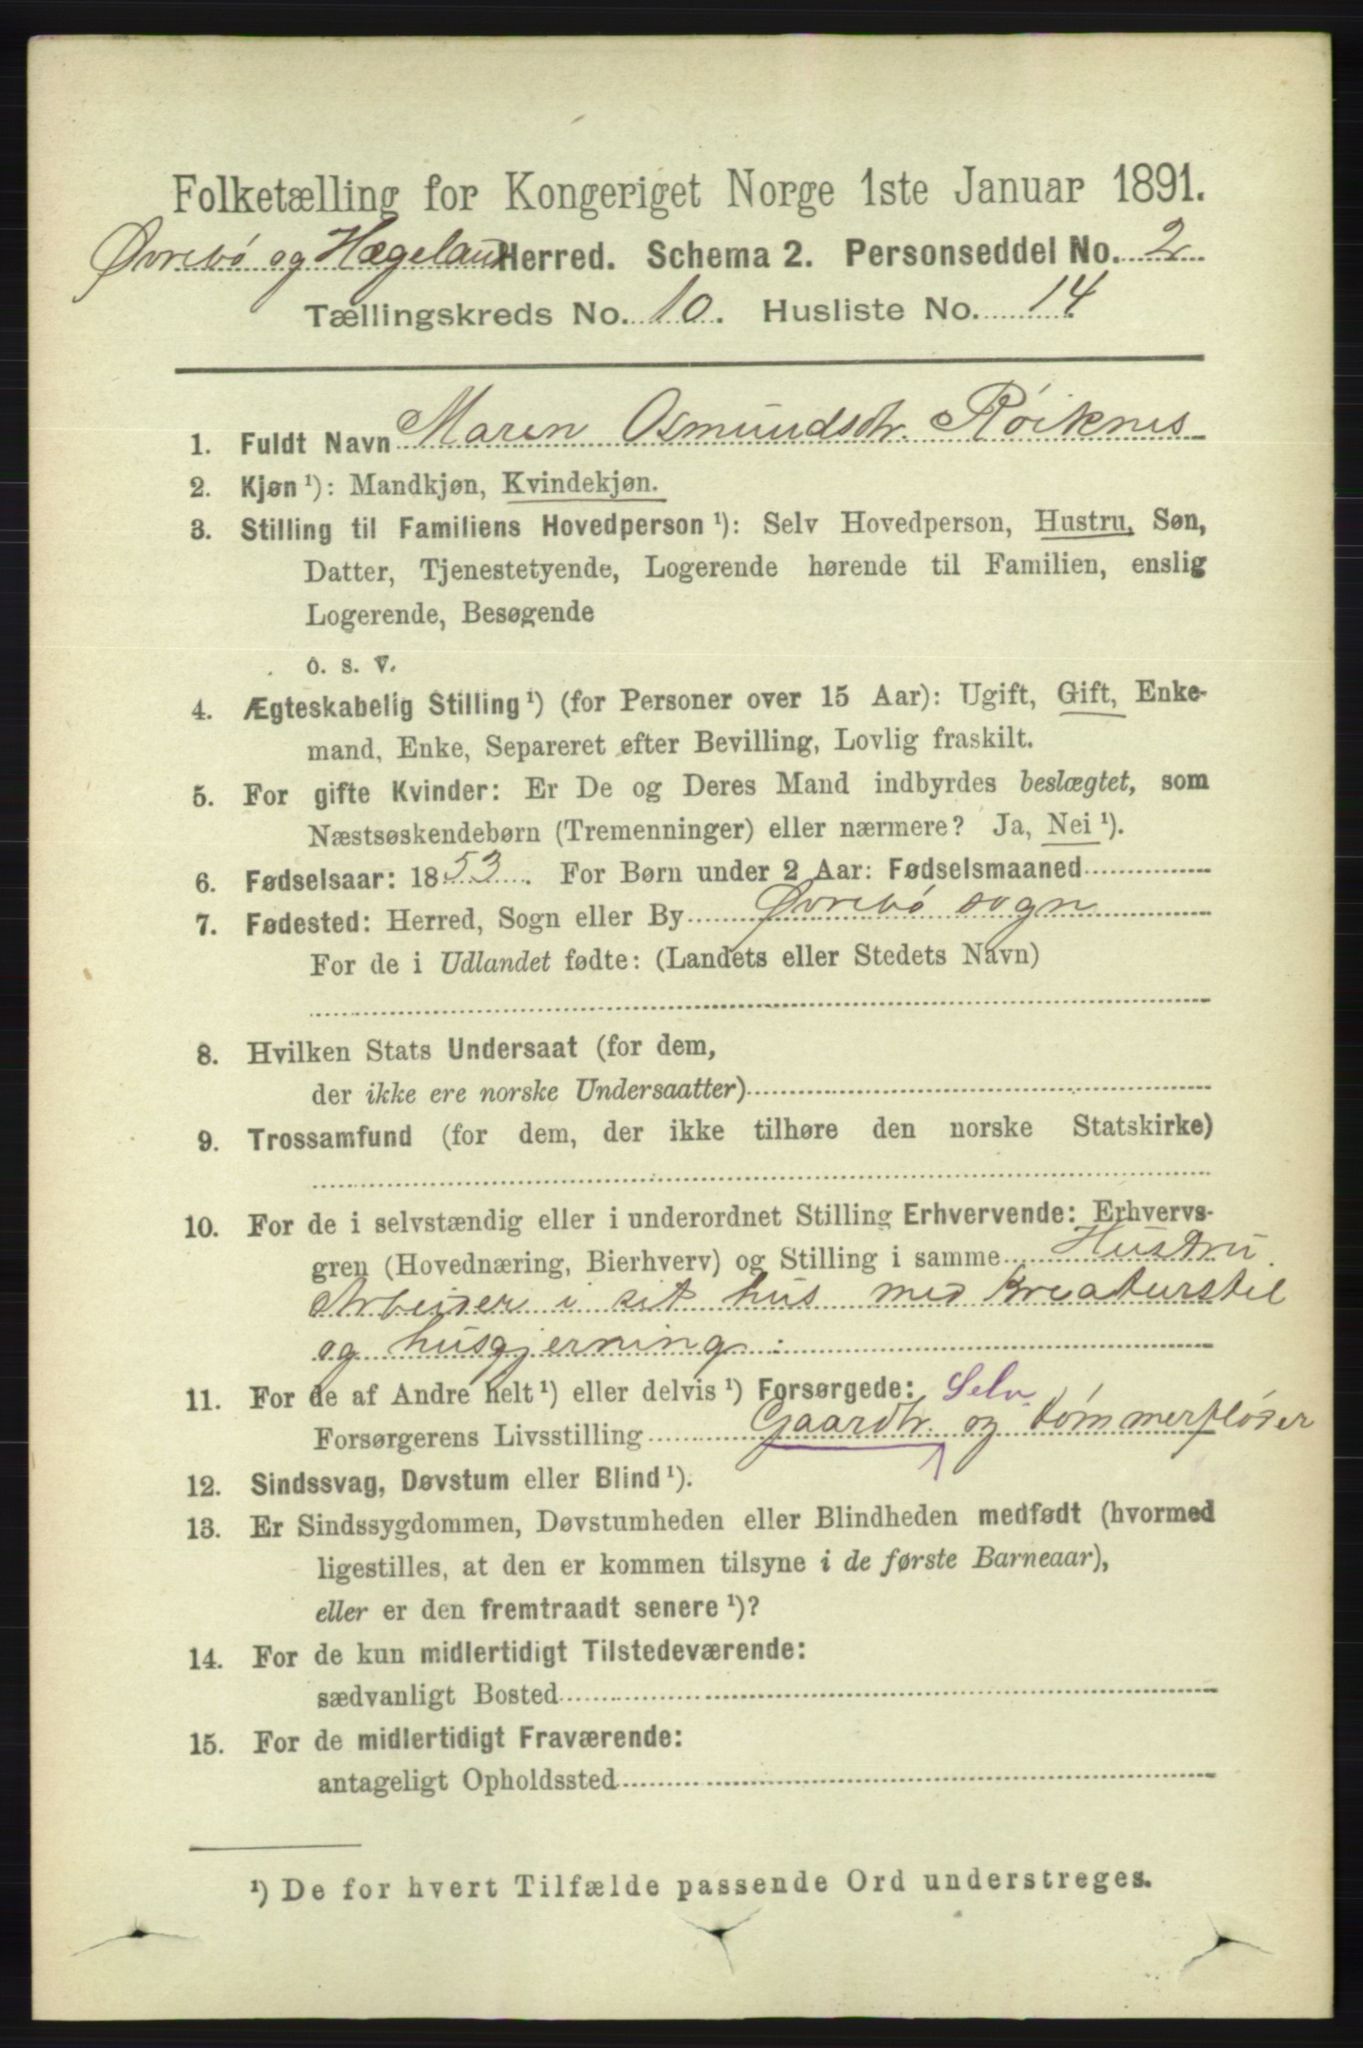 Folketælling for Kongeriget Norge 1ste Januar 1891.
Øvrebø og Hægeland Herred. Schema 2. Personseddel No. 2
Tællingskreds No. 10. Husliste No. 14
1. Fuldt Navn Maren Osmundsdtr. Røiknes
2. Kjøn ¹): Mandkjøn, Kvindekjøn.
3. Stilling til Familiens Hovedperson ¹): Selv Hovedperson, Hustru, Søn,
Datter, Tjenestetyende, Logerende hørende til Familien, enslig
Logerende, Besøgende
o. s. v.
4. Ægteskabelig Stilling ¹) (for Personer over 15 Aar): Ugift, Gift, Enke-
mand, Enke, Separeret efter Bevilling, Lovlig fraskilt.
5. For gifte Kvinder: Er De og Deres Mand indbyrdes beslægtet, som
Næstsøskendebørn (Tremenninger) eller nærmere? Ja, Nei ¹).
6. Fødselsaar: 1853. For Børn under 2 Aar: Fødselsmaaned
7. Fødested: Herred, Sogn eller By Øvrebø sogn
For de i Udlandet fødte: (Landets eller Stedets Navn)
8. Hvilken Stats Undersaat (for dem,
der ikke ere norske Undersaatter)
9. Trossamfund (for dem, der ikke tilhøre den norske Statskirke)
10. For de i selvstændig eller i underordnet Stilling Erhvervende: Erhvervs-
gren (Hovednæring, Bierhverv) og Stilling i samme Hustru.
Arbeider i sit hus med Kreaturstel
og husgjerning.
11. For de af Andre helt ¹) eller delvis ¹) Forsørgede: Selv.
Forsørgerens Livsstilling Gaardbr. og tømmerfløder
12. Sindssvag, Døvstum eller Blind ¹).
13. Er Sindssygdommen, Døvstumheden eller Blindheden medfødt (hvormed
ligestilles, at den er kommen tilsyne i de første Barneaar),
eller er den fremtraadt senere ¹)?
14. For de kun midlertidigt Tilstedeværende:
sædvanligt Bosted
15. For de midlertidigt Fraværende:
antageligt Opholdssted
¹) De for hvert Tilfælde passende Ord understreges.